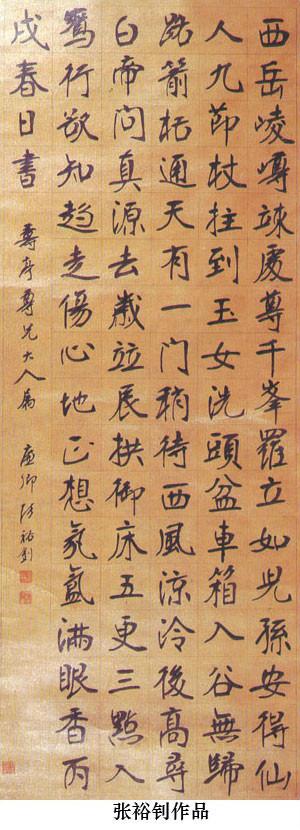 西岳崚嶒竦處尊千峯羅立如兒孫安得仙
人九節杖拄到玉女洗頭盆車箱入谷無歸
路箭栝通天有一門稍待西風涼冷後高尋
白帝問真源去歲茲辰拱御床五更三點入
鴛行欲知趨走傷心地正想氛氳滿眼香丙
戌春日書
尊兄大人屬 廉卿張裕釗
张裕钊作品